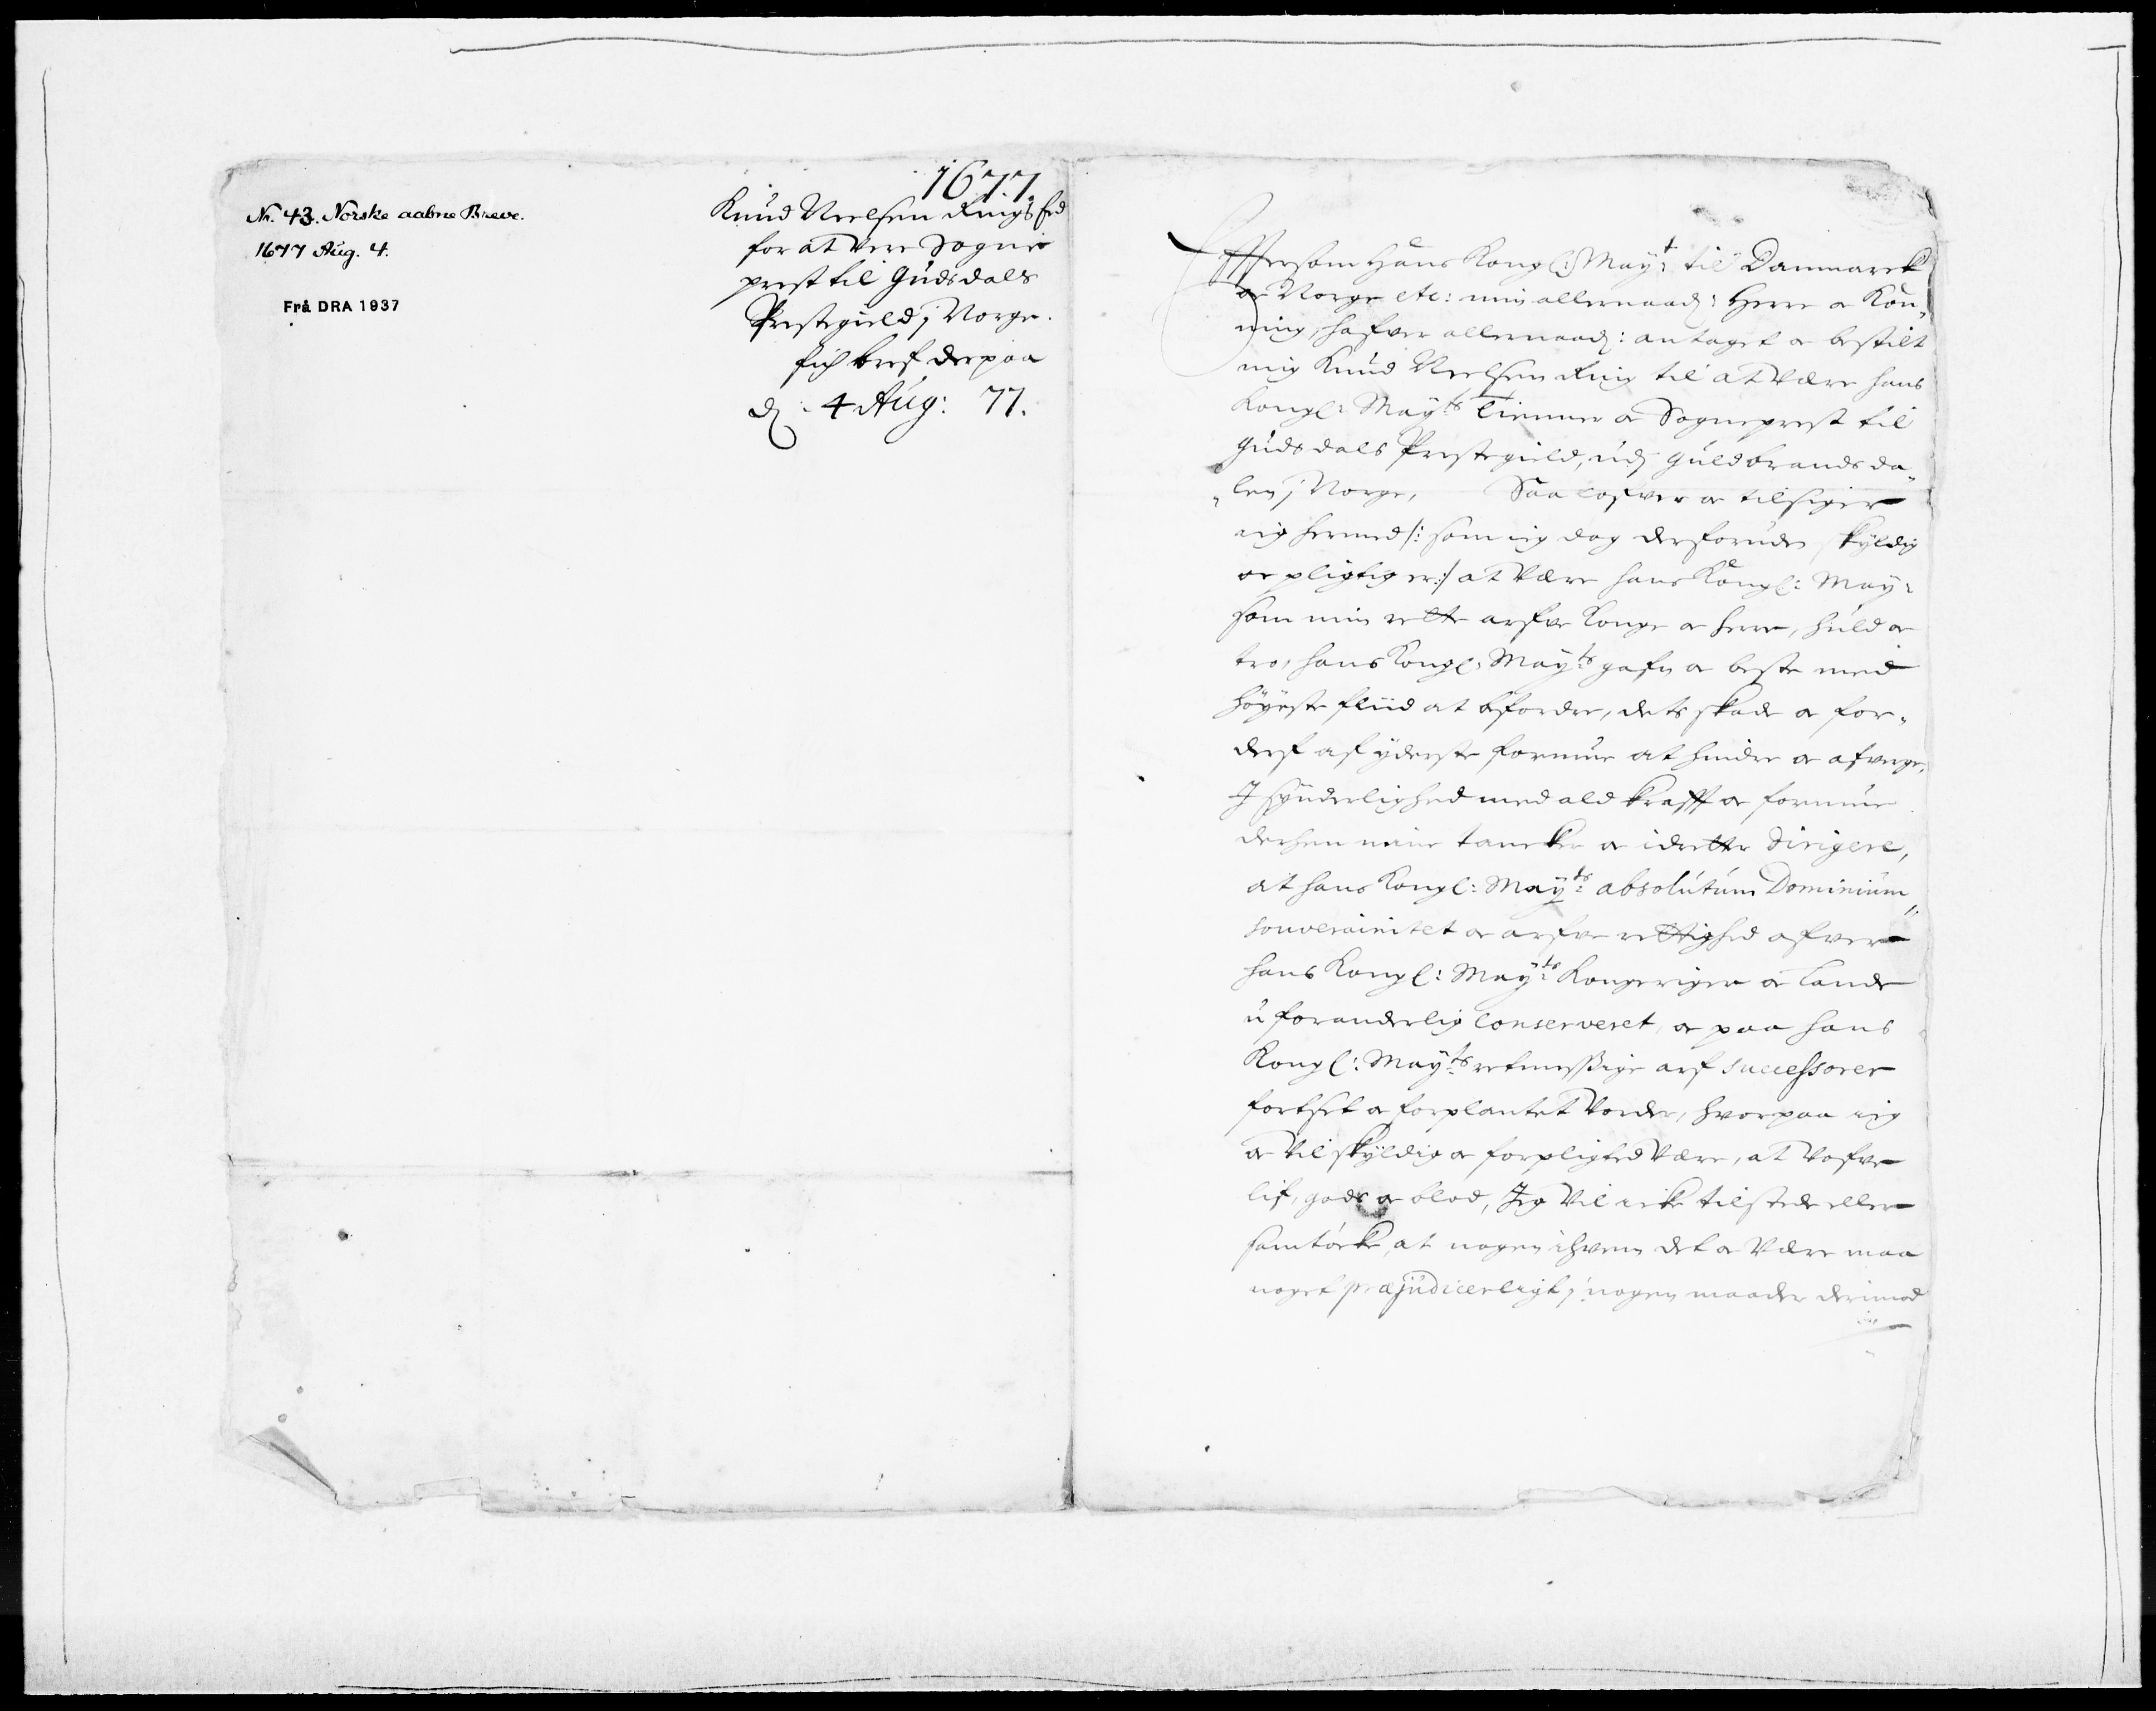 Nr. 43. Norske aabne Breve.
1677 Aug. 4.
Frå DRA 1937
1677.
Knud Nielsen Rings Eed
for at Vere Sogne
prest til Gudsdals
Prestegield j Norge.
fich bref derpaa
d. 4 Aug: 77.
Effersom Hans Kongl: Mayt: til Danmarck
oc Norge etc: min allernaad: Herre oc Kon-
ning, hafver allernaad: antaget oc bestilt
mig Knud Nielsen Ring til at Være hans
Kongl: Mayts: Tienner oc Sogneprest til
Gudsdals Prestegield, udj Guldbrandsda-
len j Norge, Saa lofver oc tilsiger
ieg hermed /: som ieg dog desforuden skyldig
oc pligtig er :/ at Være hans Kongl: May:
som min rette arfve Konge oc herre, huld oc
tro, hans Kongl: Mayts gafn oc beste med
höyeste fliid at befordre, dets skade oc for-
derf af yderste formue at hindre oc afverge,
I synderlighed med ald krafft oc formue
derhen mine tancker oc idrætte dirigere,
at hans Kongl: Mayts: absolutum Dominium,
souverainitet oc arfve rettighed ofver
hans Kongl: Mayts: Kongeriger oc Lande
uforanderlig conserveret, oc paa hans
Kongl: Mayts: retmessige arf successorer
fortset oc forplantet Vorder, hvorpaa ieg
oc Vil skyldig oc forpligted Være, at Vofve
lif, gods oc blod, Jeg Vil icke tilstede eller
samtöcke, at nogen ihvem det oc Være maa
noget præjudicerligt j nogen maade derimod